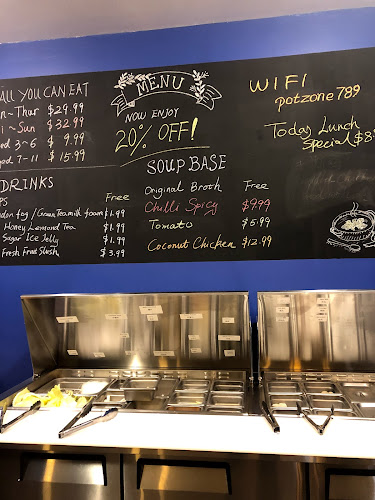 ALL YOU CAN EAT
n ~ Thur $29.99
i ~ Sun $32.99
ed 3~6 $9.99
ed 7-11 $15.99
DRINKS
PS Free
don fog / Green Tea milk foam $1.99
Honey Lemond Tea $1.99
Sugar Ice Jelly $1.99
Fresh Fruit Slush $3.99
MENU
NOW ENJOY
20% OFF!
SOUP BASE
Original Broth Free
Chilli Spicy $9.99
Tomato $5.99
Coconut Chicken $12.99
WIFI
potzone789
Today Lunch
Special $8